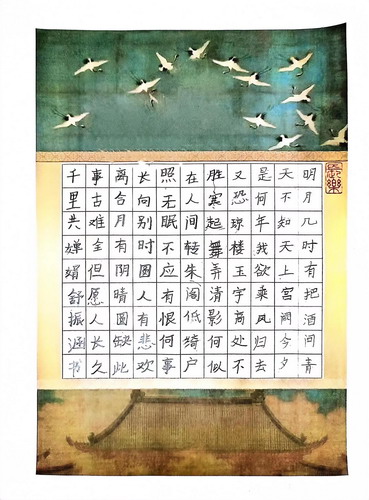 明月几时有把酒问青
天不知天上宫阙今夕
是何年我欲乘风归去
又恐琼楼玉宇高处不
胜寒起舞弄清影何似
在人间转朱阁低绮户
照无眠不应有恨何事
长向别时圆人有悲欢
离合月有阴晴圆缺此
事古难全但愿人长久
千里共婵娟舒振涵书